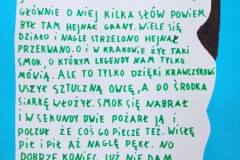 GŁÓWNIE O NIEJ KILKA SŁÓW POWIEM.
BYŁ TAM HEJNAŁ GRANY. WIELE SIĘ
DZIAŁO I NAGLE STRZELONO HEJNAŁ
PRZERWANO. O I W KRAKOWIE ŻYŁ TAKI
SMOK, O KTÓRYM LEGENDY NAM TYLKO
MÓWIĄ. ALE TO TYLKO DZIĘKI KRAWCZYKOWI
USZYŁ SZTUCZNĄ OWCĘ, A DO ŚRODKA
SIARKĘ WŁOŻYŁ. SMOK SIĘ NABRAŁ
I W SEKUNDY DWIE POŻARŁ JĄ I
POCZUŁ ŻE COŚ GO PIECZE TEŻ. WISŁĘ
PIŁ I PIŁ AŻ NAGLE PĘKŁ. NO
DOBRZE KONIEC JUŻ NIE DAM